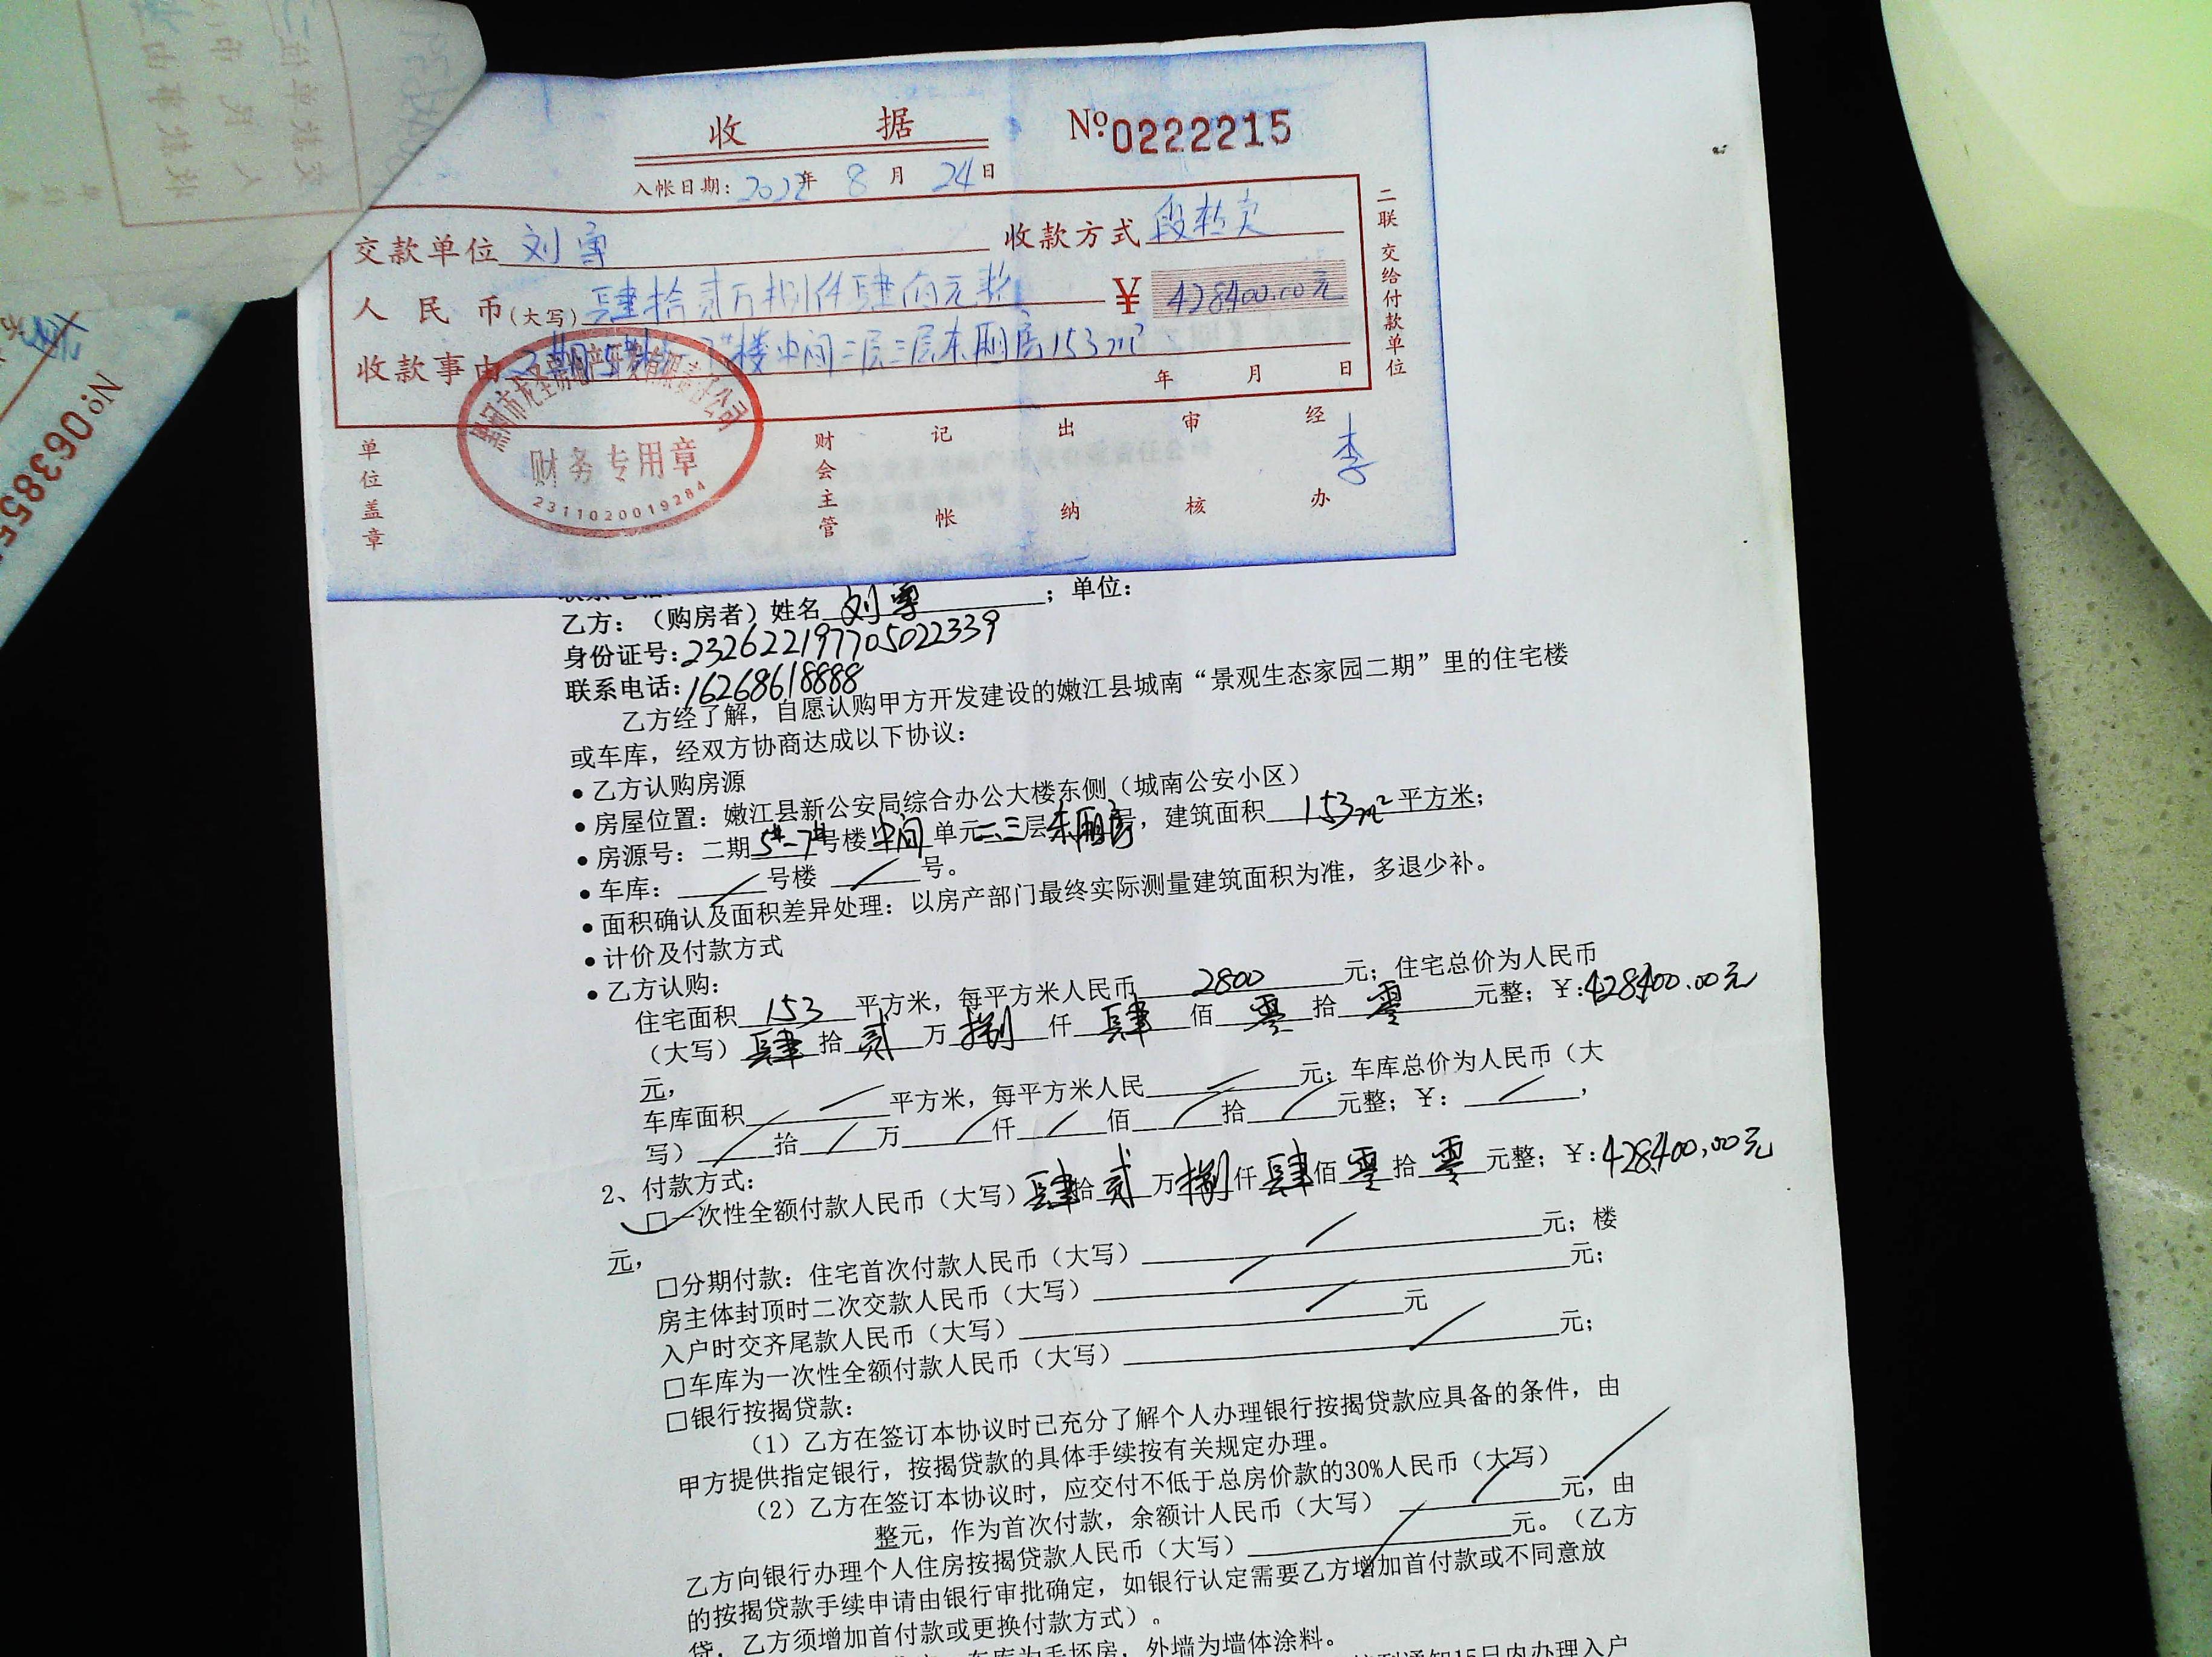 收 据
№ 0222215
入帐日期：2022年 8 月 24 日
交款单位 刘雪 收款方式
人 民 币(大写) 肆拾贰万捌仟肆佰元整 ￥ 428400.00元
收款事由 二期5#-7#楼中间二层三层东厢房153m²
年 月 日
二联 交给付款单位
单位盖章
财会主管
记帐
出纳
审核
经办
李
财务专用章
2311020019284
№0638551
乙方：（购房者）姓名 刘雪 ；单位：
身份证号:232622197705022339
联系电话:16268618888
乙方经了解，自愿认购甲方开发建设的嫩江县城南“景观生态家园二期”里的住宅楼
或车库，经双方协商达成以下协议：
•乙方认购房源
•房屋位置：嫩江县新公安局综合办公大楼东侧（城南公安小区）
•房源号：二期 5#-7# 号楼 中间 单元 二三 层 东厢房 号，建筑面积 153m² 平方米；
•车库： / 号楼 / 号。
•面积确认及面积差异处理：以房产部门最终实际测量建筑面积为准，多退少补。
•计价及付款方式
•乙方认购：
住宅面积 153 平方米，每平方米人民币 2800 元；住宅总价为人民币
（大写）肆 拾 贰 万 捌 仟 肆 佰 零 拾 零 元整；￥:428400.00元
元，
车库面积 / 平方米，每平方米人民 / 元；车库总价为人民币（大
写） / 拾 / 万 / 仟 / 佰 / 拾 / 元整；￥： / ，
2、付款方式：
□一次性全额付款人民币（大写）肆 拾 贰 万 捌 仟 肆 佰 零 拾 零 元整；￥:428400.00元
元，
□分期付款：住宅首次付款人民币（大写） / 元；楼
房主体封顶时二次交款人民币（大写） / 元；
入户时交齐尾款人民币（大写） / 元
□车库为一次性全额付款人民币（大写） / 元；
□银行按揭贷款：
（1）乙方在签订本协议时已充分了解个人办理银行按揭贷款应具备的条件，由
甲方提供指定银行，按揭贷款的具体手续按有关规定办理。
（2）乙方在签订本协议时，应交付不低于总房价款的30%人民币（大写） /
整元，作为首次付款，余额计人民币（大写） / 元，由
乙方向银行办理个人住房按揭贷款人民币（大写） / 元。（乙方
的按揭贷款手续申请由银行审批确定，如银行认定需要乙方增加首付款或不同意放
贷，乙方须增加首付款或更换付款方式）。
车库为毛坯房，外墙为墙体涂料。
接到通知15日内办理入户